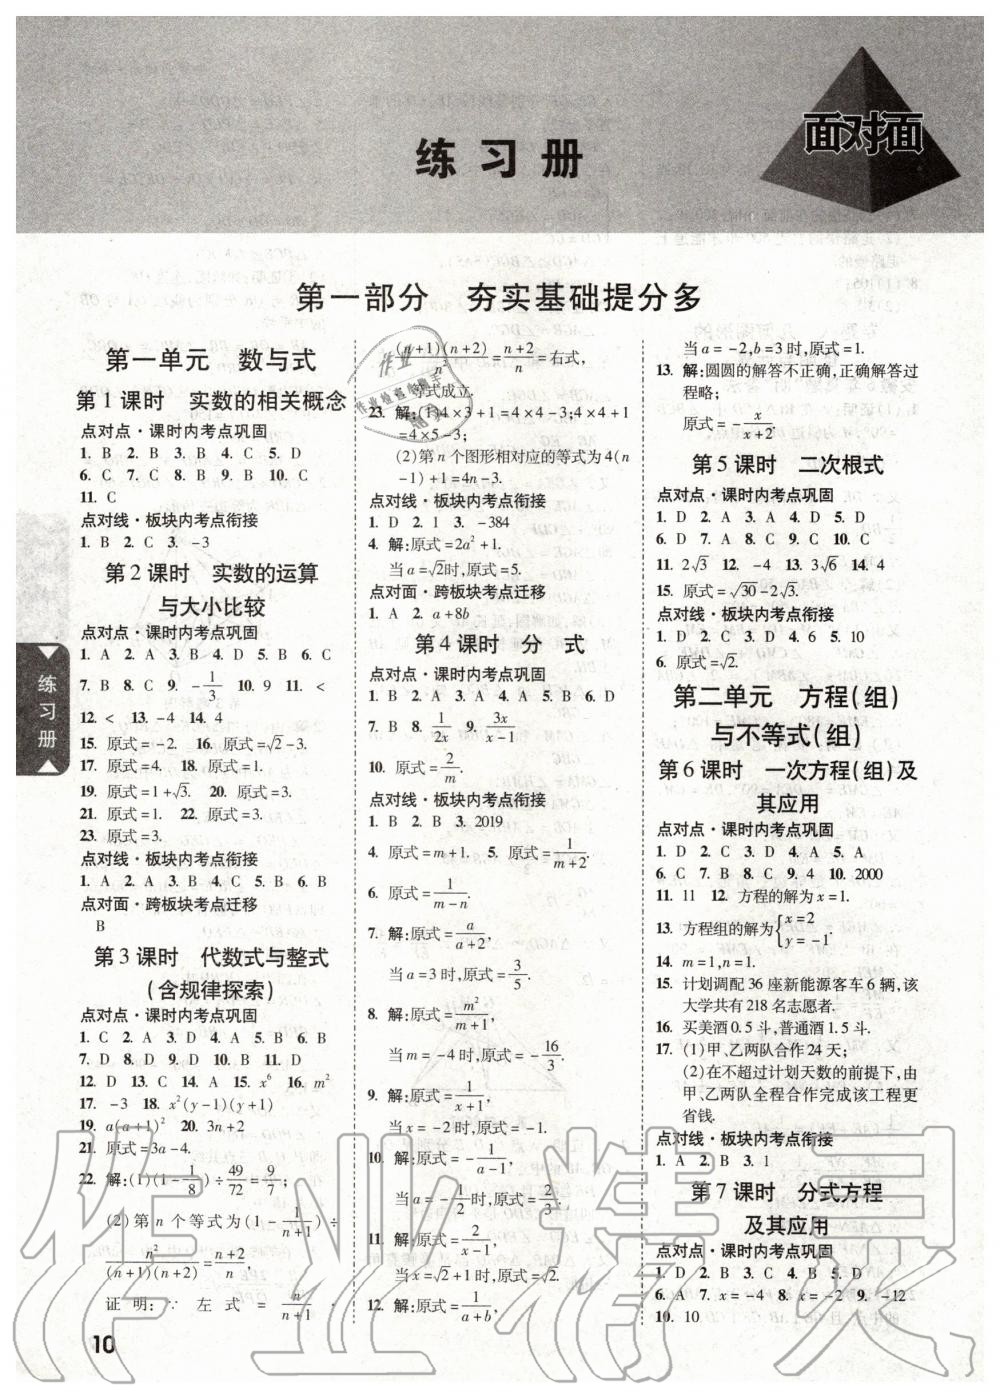 面对面
练习册
第一部分 夯实基础提分多
第一单元 数与式
第1课时 实数的相关概念
点对点·课时内考点巩固
1. B 2. B 3. B 4. C 5. D
6. C 7. C 8. B 9. B 10. C
11. C
点对线·板块内考点衔接
1. B 2. C 3. -3
第2课时 实数的运算
与大小比较
点对点·课时内考点巩固
1. A 2. A 3. B 4. D 5. B 6. C
7. B 8. C 9. -1/3 10. 9 11. <
12. < 13. -4 14. 4
15. 原式=-2. 16. 原式=√2-3.
17. 原式=4. 18. 原式=1.
19. 原式=1+√3. 20. 原式=3.
21. 原式=1. 22. 原式=3.
23. 原式=3.
点对线·板块内考点衔接
1. A 2. A 3. B 4. C 5. B 6. B
点对面·跨板块考点迁移
B
第3课时 代数式与整式
(含规律探索)
点对点·课时内考点巩固
1. C 2. A 3. D 4. A 5. B 6. B
7. D 8. D 9. D 10. B 11. D
12. D 13. C 14. A 15. x⁶ 16. m²
17. -3 18. x²(y-1)(y+1)
19. a(a+1)² 20. 3n+2
21. 原式=3a-4.
22. 解:(1)(1-1/8)÷49/72=9/7;
(2)第n个等式为(1-1/(n+1))÷
n²/((n+1)(n+2))=(n+2)/n,
证明:∵左式=n/(n+1)·
(n+1)(n+2)/n²=(n+2)/n=右式,
等式成立.
23. 解:(1)4×3+1=4×4-3;4×4+1
=4×5-3;
(2)第n个图形相对应的等式为4(n
-1)+1=4n-3.
点对线·板块内考点衔接
1. D 2. 1 3. -384
4. 解:原式=2a²+1.
当a=√2时,原式=5.
点对面·跨板块考点迁移
1. A 2. a+8b
第4课时 分 式
点对点·课时内考点巩固
1. B 2. A 3. A 4. A 5. B 6. D
7. B 8. 1/2x 9. 3x/(x-1)
10. 原式=2/m.
点对线·板块内考点衔接
1. B 2. B 3. 2019
4. 原式=m+1. 5. 原式=1/(m+2).
6. 原式=1/(m-n).
7. 解:原式=a/(a+2),
当a=3时,原式=3/5.
8. 解:原式=m²/(m+1),
当m=-4时,原式=-16/3.
9. 解:原式=1/(x+1),
当x=-2时,原式=-1.
10. 解:原式=-1/(a-1),
当a=-1/2时,原式=2/3.
11. 解:原式=2/(x-1),
当x=√2+1时,原式=√2.
12. 解:原式=1/(a+b),
当a=-2,b=3时,原式=1.
13. 解:圆圆的解答不正确,正确解答过
程略;
原式=-x/(x+2).
第5课时 二次根式
点对点·课时内考点巩固
1. D 2. A 3. A 4. D 5. D
6. D 7. A 8. C 9. C 10. C
11. 2√3 12. -4 13. 3√6 14. 4
15. 原式=√30-2√3.
点对线·板块内考点衔接
1. D 2. C 3. D 4. 6 5. 10
6. 原式=√2.
第二单元 方程(组)
与不等式(组)
第6课时 一次方程(组)及
其应用
点对点·课时内考点巩固
1. D 2. C 3. D 4. A 5. A
6. C 7. B 8. C 9. 4 10. 2000
11. 11 12. 方程的解为x=1.
13. 方程组的解为{x=2
y=-1.
14. m=1,n=1.
15. 计划调配36座新能源客车6辆,该
大学共有218名志愿者.
16. 买美酒0.5斗,普通酒1.5斗.
17. (1)甲、乙两队合作24天;
(2)在不超过计划天数的前提下,由
甲、乙两队全程合作完成该工程更
省钱.
点对线·板块内考点衔接
1. A 2. B 3. 1
第7课时 分式方程
及其应用
点对点·课时内考点巩固
1. D 2. B 3. C 4. B 5. D
6. A 7. x=-4 8. x=-2 9. -12
10. 10
练习册
10
作业精灵